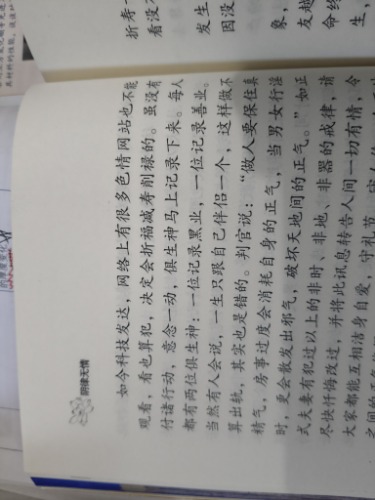 阴律无情
如今科技发达，网络上有很多色情网站也不能
观看，看也算犯，决定会折福减寿削禄的。虽没有
付诸行动，意念一动，俱生神马上记录下来。每人
都有两位俱生神：一位记录黑业，一位记录善业。
当然有人会说，一生只跟自己伴侣一个，这样做不
算出轨，其实也是错的。判官说：“做人要保住真
精气，房事过度会消耗自身的正气，当男女行淫
时，更会散发出邪气，破坏天地间的正气。”如正
式夫妻有犯过以上的非时、非地、非器的戒律，请
尽快忏悔改过，并将此讯息转告人间一切有情，令
大家都能互相洁身自爱，守礼节
折寿
看没
发生
因没
象，
友越
命终
生，